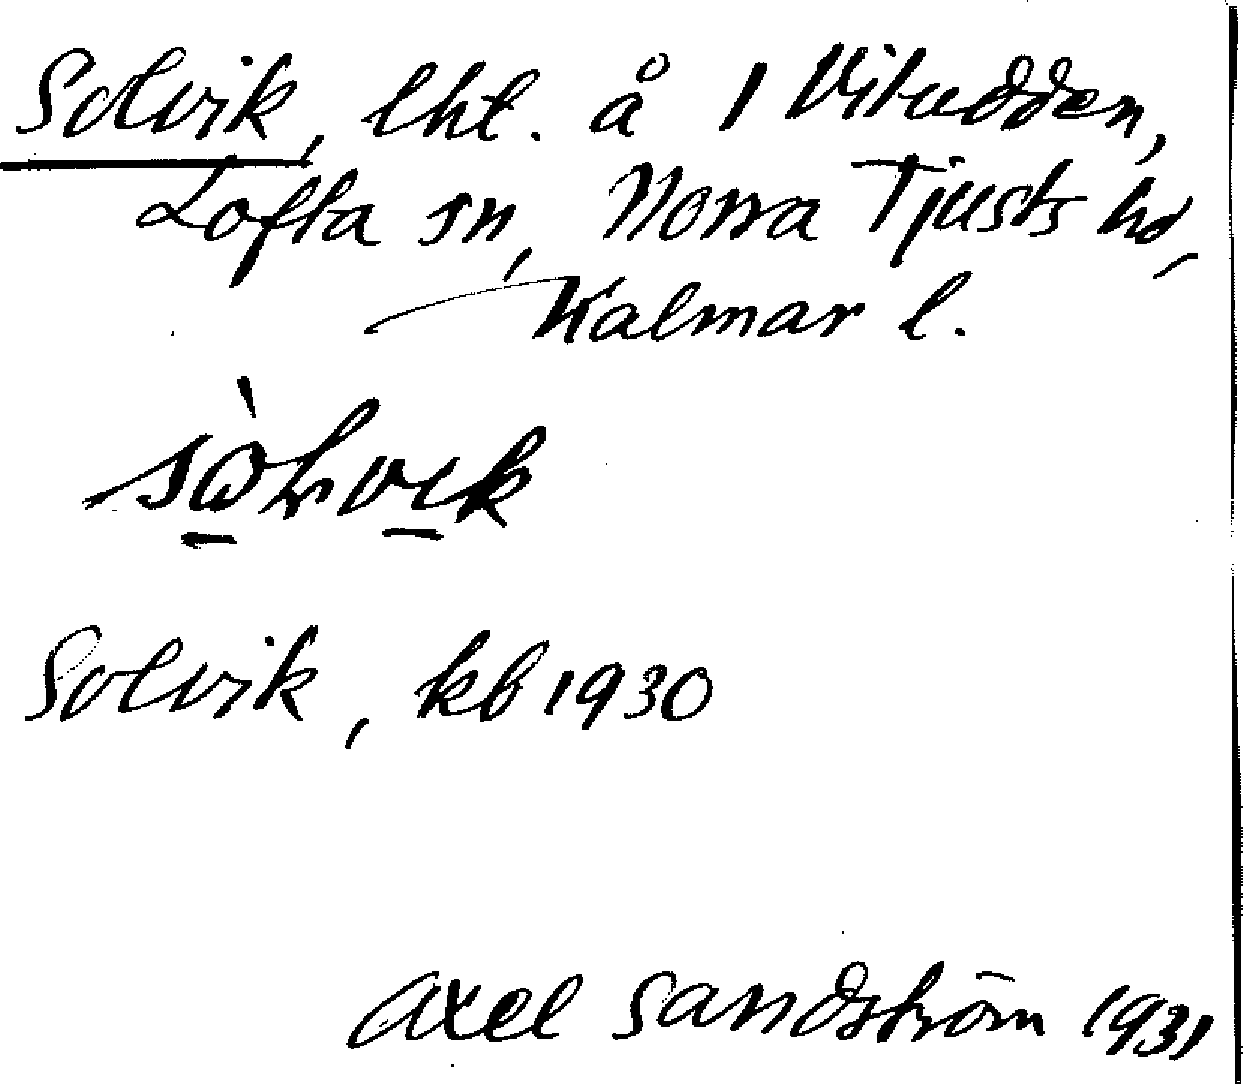 Solvik, lht. å 1 Vitudden,
Lofta sn, Norra Tjusts hd,
Kalmar l.
Solvik, kb 1930
Axel Sandström 1931